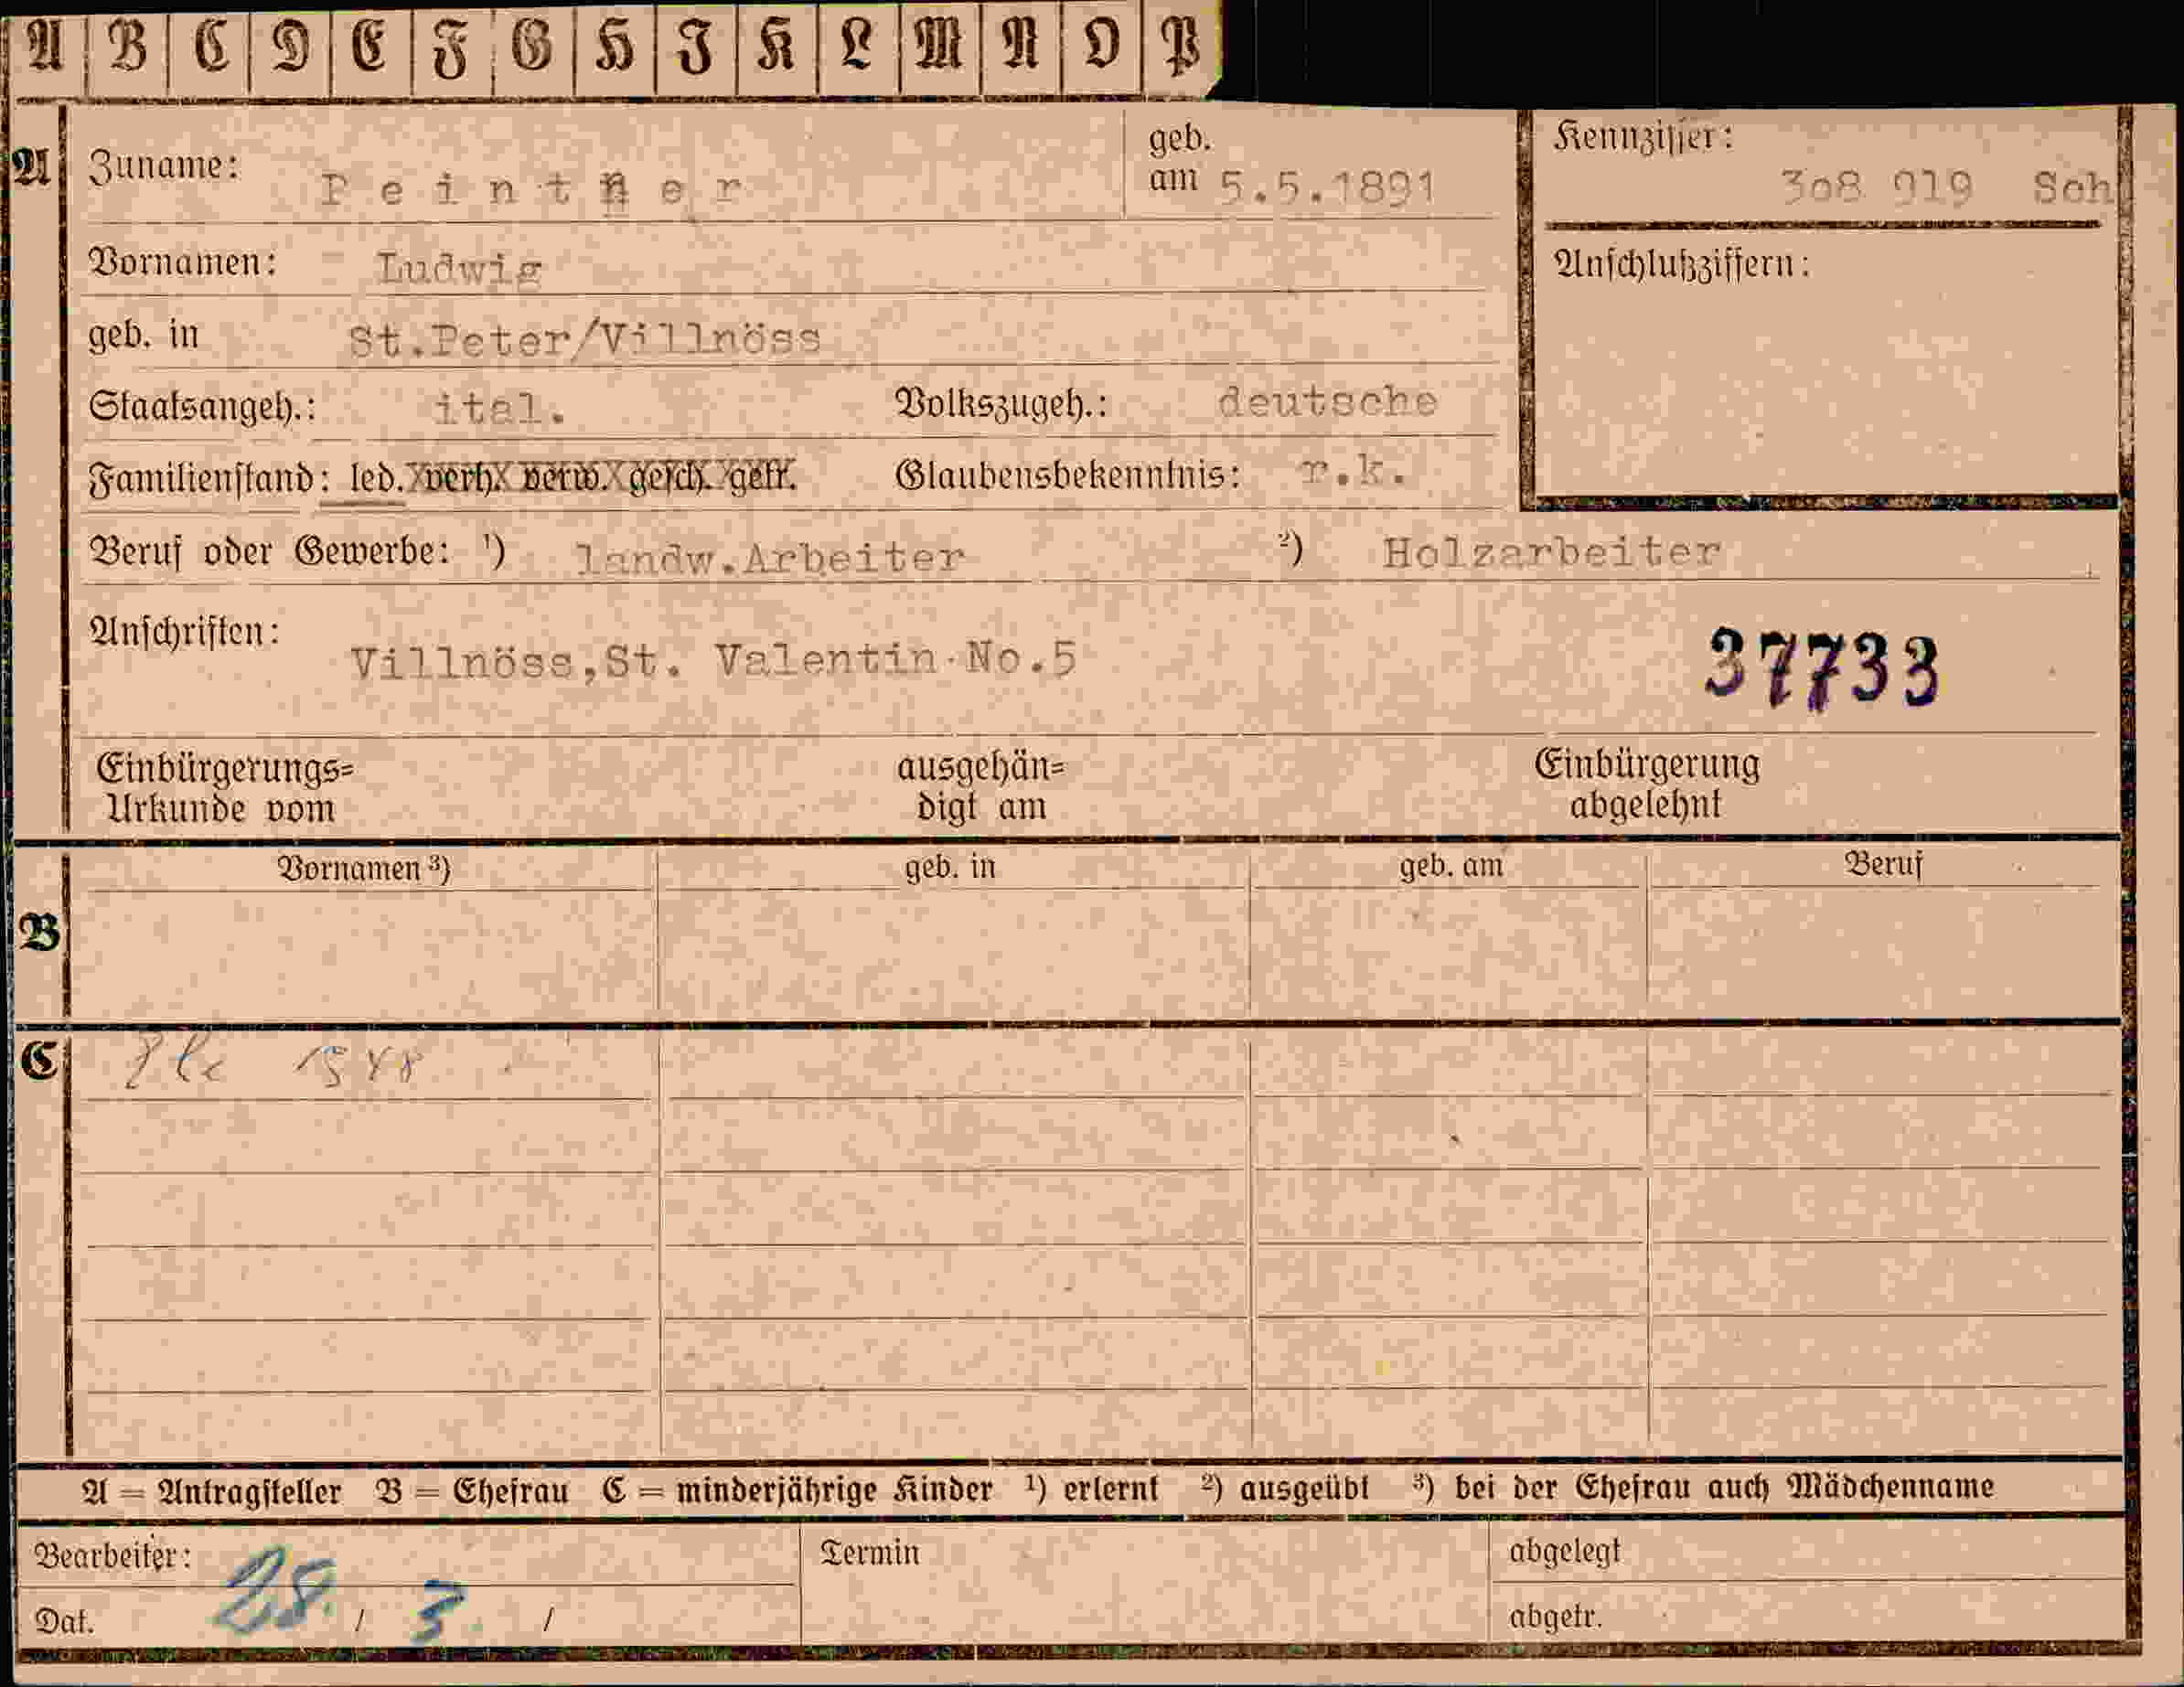 A B C D E F G H I K L M N O P
A Zuname: Peintner geb. am 5.5.1891 Kennziffer: 308 919 Sch
Vornamen: Ludwig Anschlußziffern:
geb. in St.Peter/Villnöss
Staatsangeh.: ital. Volkszugeh.: deutsche
Familienstand: led. verh. verw. gesch. getr. Glaubensbekenntnis: r.k.
Beruf oder Gewerbe: ¹) landw.Arbeiter ²) Holzarbeiter
Anschriften: Villnöss,St. Valentin No.5 37733
Einbürgerungs= ausgehän= Einbürgerung
Urkunde vom digt am abgelehnt
Vornamen ³) geb. in geb. am Beruf
B
C 1948
A = Antragsteller B = Ehefrau C = minderjährige Kinder ¹) erlernt ²) ausgeübt ³) bei der Ehefrau auch Mädchenname
Bearbeiter: Termin abgelegt
Dat. 28. / 3. / abgetr.